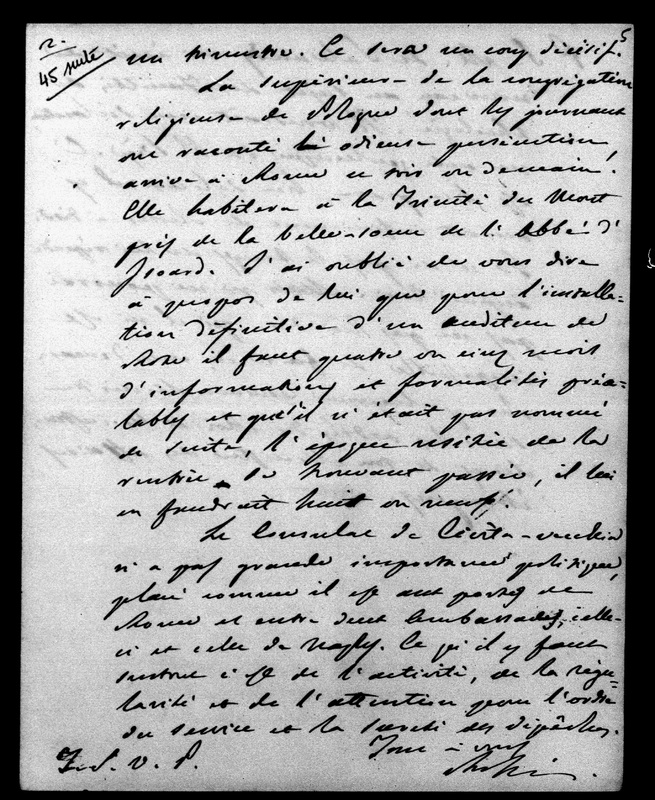 2.
45 suite
5
un trimestre. Ce sera un coup décisif.
La supérieure de la congrégation
religieuse de Pologne dont les journaux
ont raconté l'odieuse persécution,
arrive à Rome ce soir ou demain.
Elle habitera à la Trinité du Mont
près de la belle-soeur de l'Abbé d'
Isoard. J'ai oublié de vous dire
à propos de lui que pour l'installa-
tion définitive d'un auditeur de
Rote il faut quatre ou cinq mois
d'informations et formalités préa-
lables et qu'il n'était pas nommé
de suite, l'époque usitée de la
rentrée se trouvant passée, il lui
en faudrait huit ou neuf.
Le Consulat de Civita-vecchia
n'a pas grande importance politique,
placé comme il est aux portes de
Rome et entre deux Ambassades, celle-
ci et celle de Naples. Ce qu'il y faut
surtout c'est de l'activité, de la régu-
larité et de l'attention pour l'ordre
du service et la sureté des dépêches.
Tout à vous
Rossi
T. S. V. P.